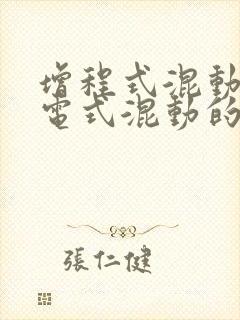 增程式混動
電式混動的
張仁健